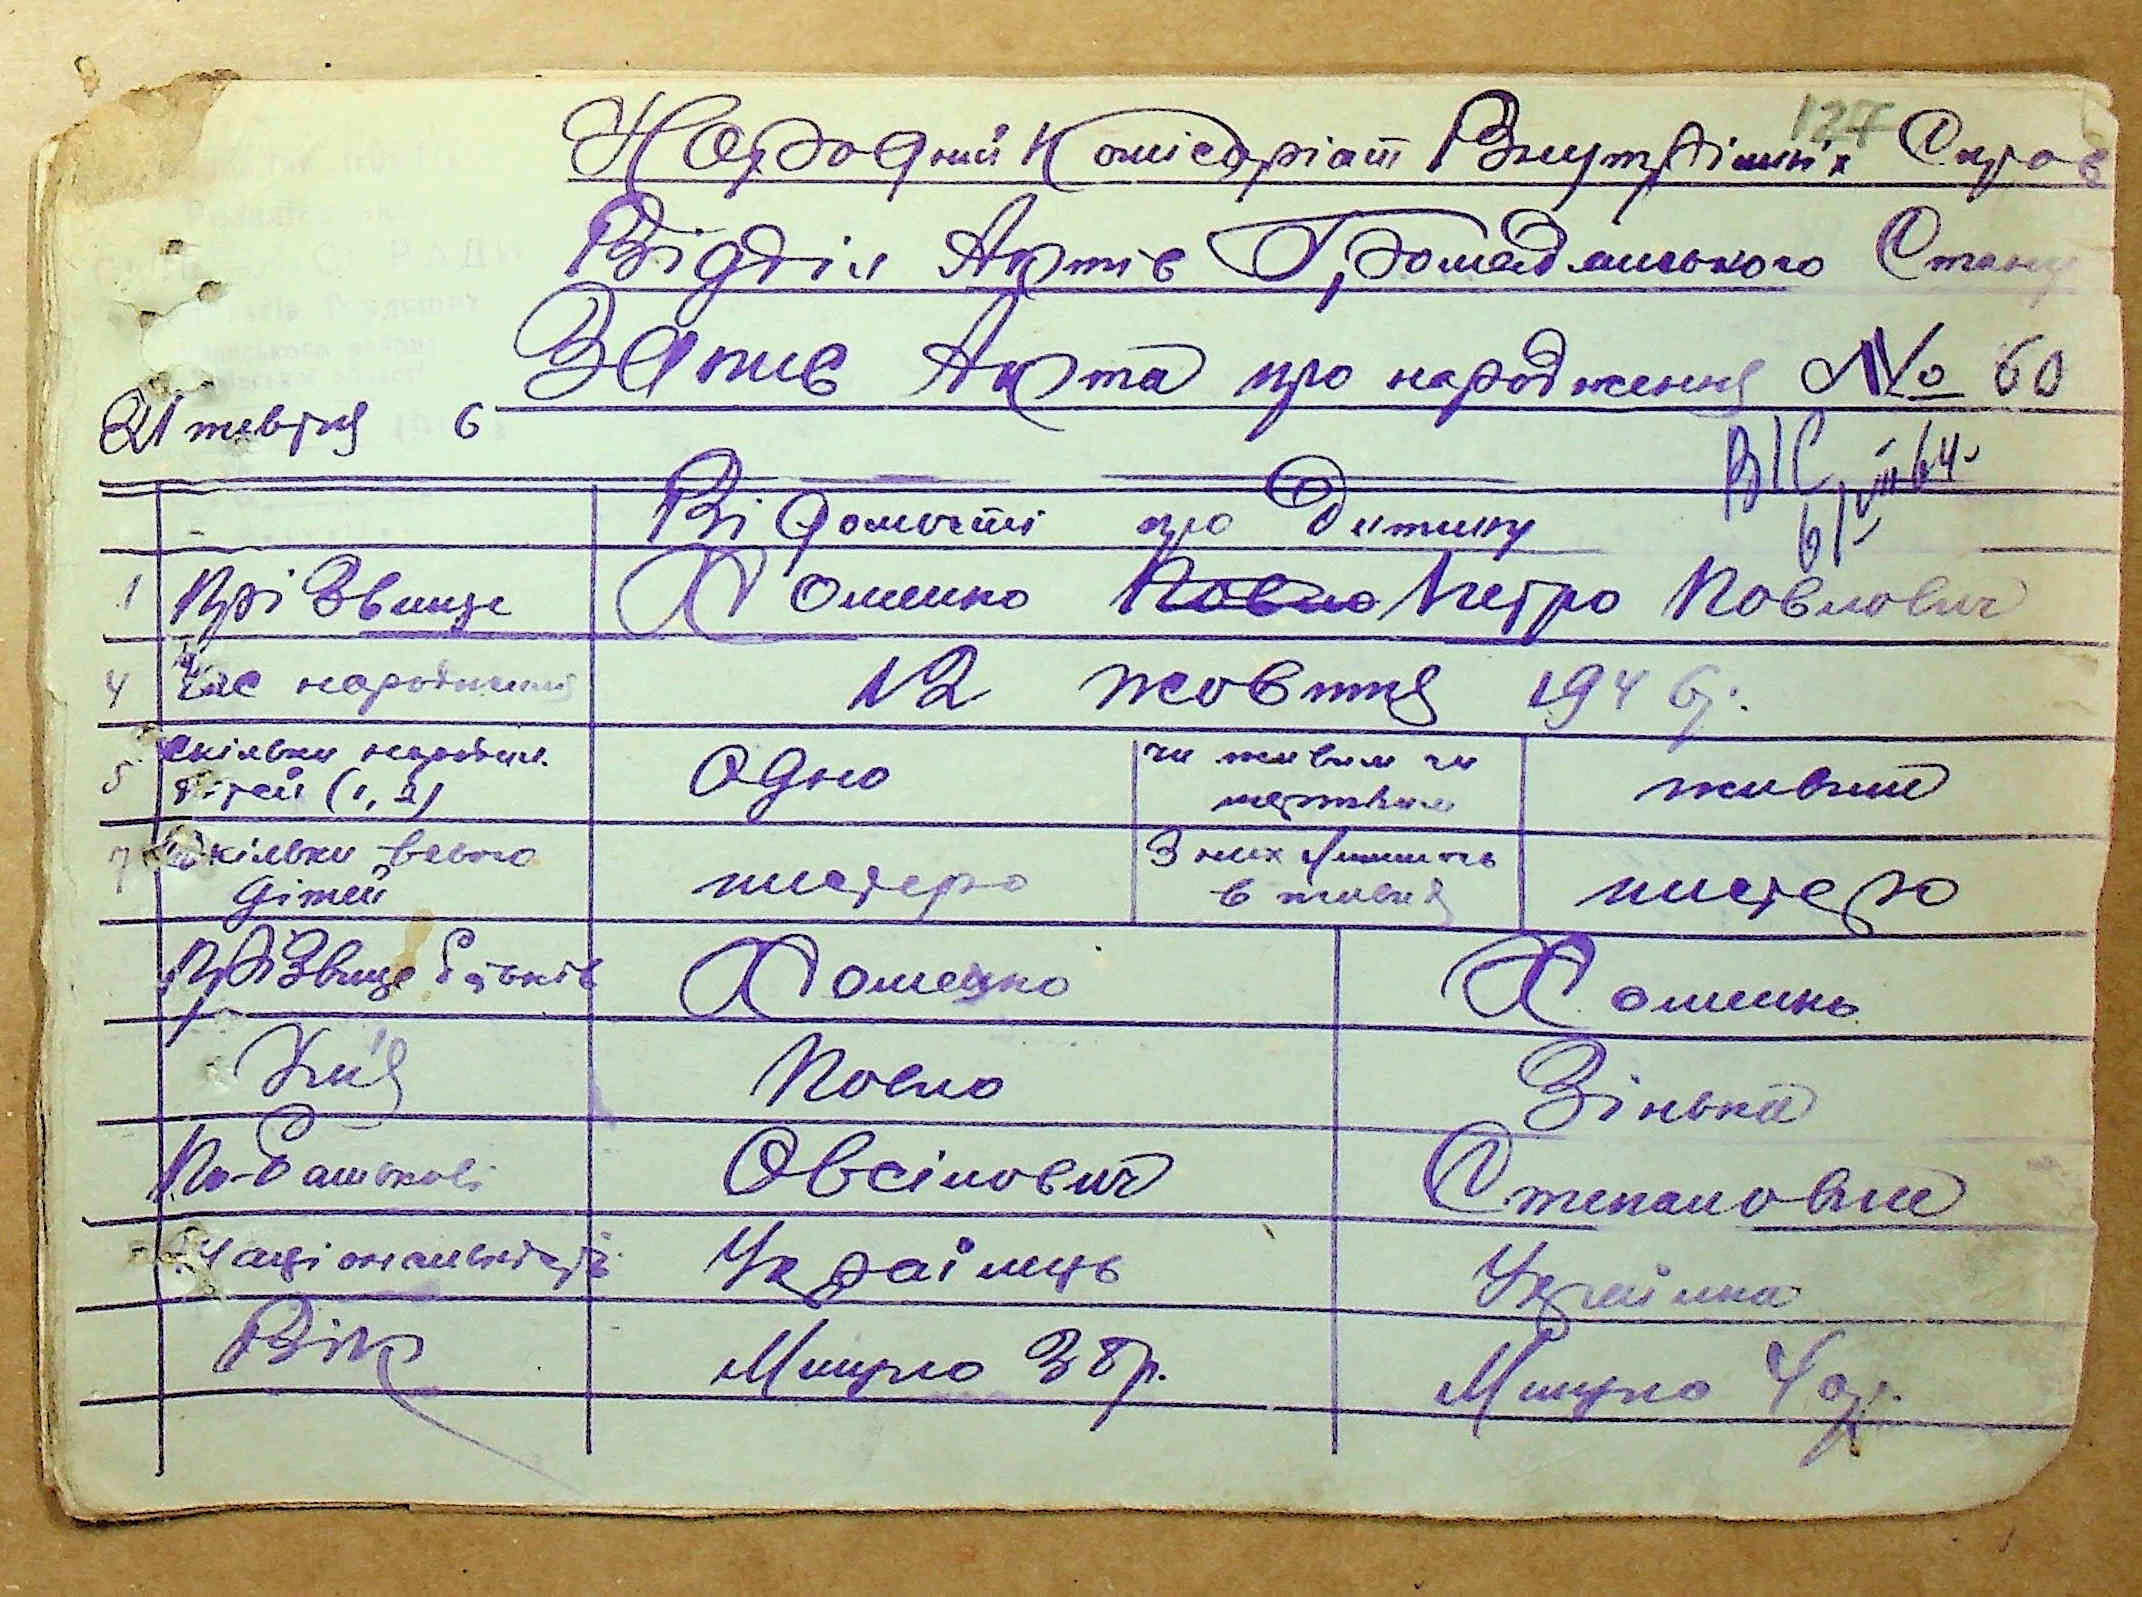 127
Народний Комісаріат Внутрішніх Справ
Відділ Актів Громадянського Стану
Запис Акта про народження № 60
21 жовтня 6
Відомости про дитину
1 Прізвище Хоменко Павло Петро Павлович
4 Час народження 12 жовтня 1946 р.
5 Скільки народил. дітей (1, 2) Одно чи живим чи мертвим живим
7 Скільки всього дітей шестеро З них лишилось в живих шестеро
Прізвище батьків Хоменко Хоменко
Ім'я Павло Зінька
По-батькові Овсійович Степановна
Національність Українець Українка
Вік Минуло 38 р. Минуло 40 р.